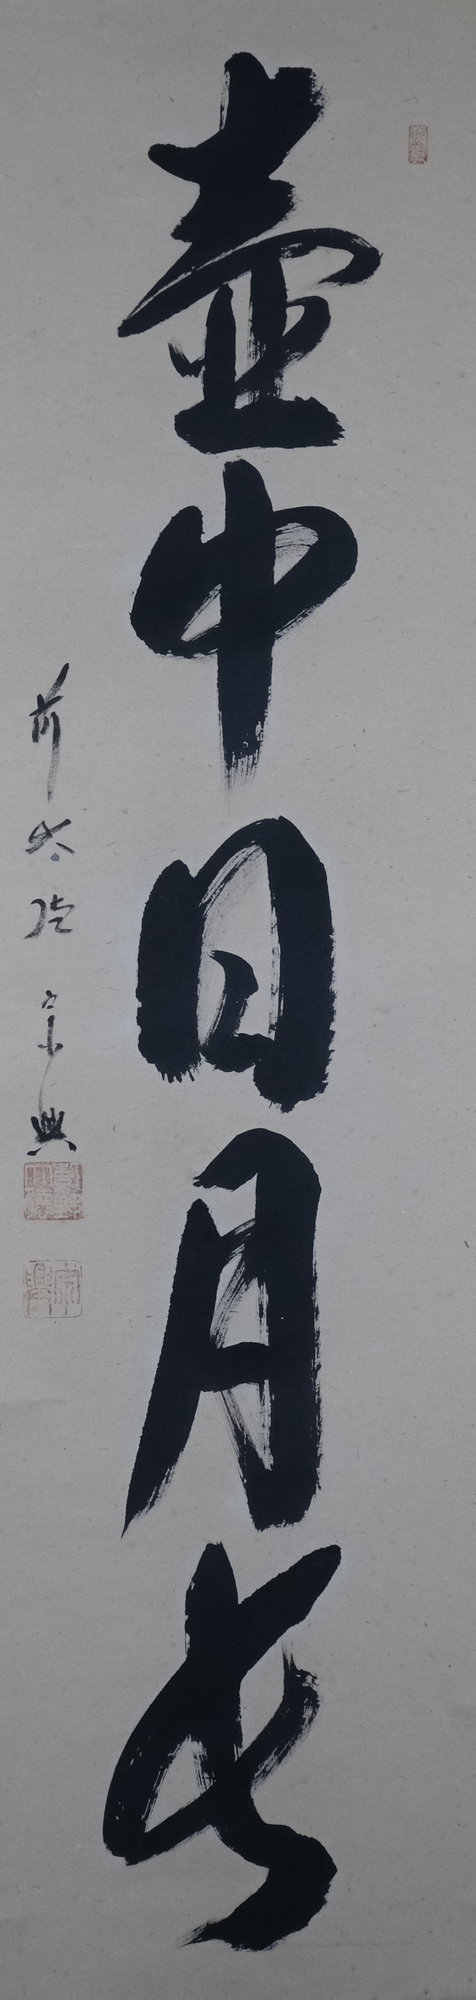 壺中日月長
前大徳宗興